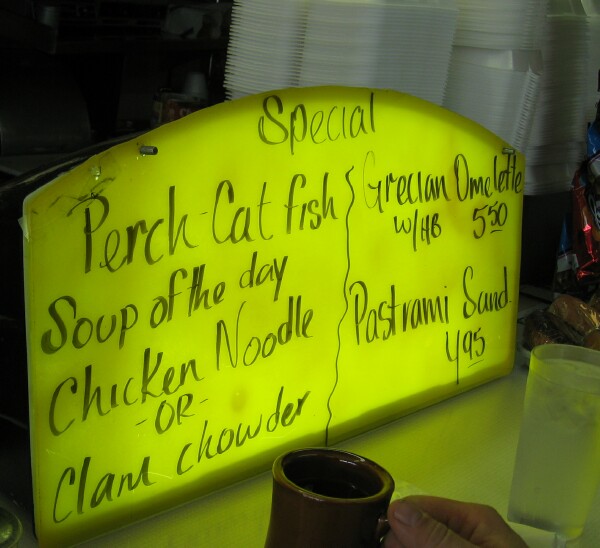 Special
Perch-Cat fish
Soup of the day
Chicken Noodle
-OR-
Clam chowder
Grecian Omelette
W/HB 5.50
Pastrami Sand.
4.95